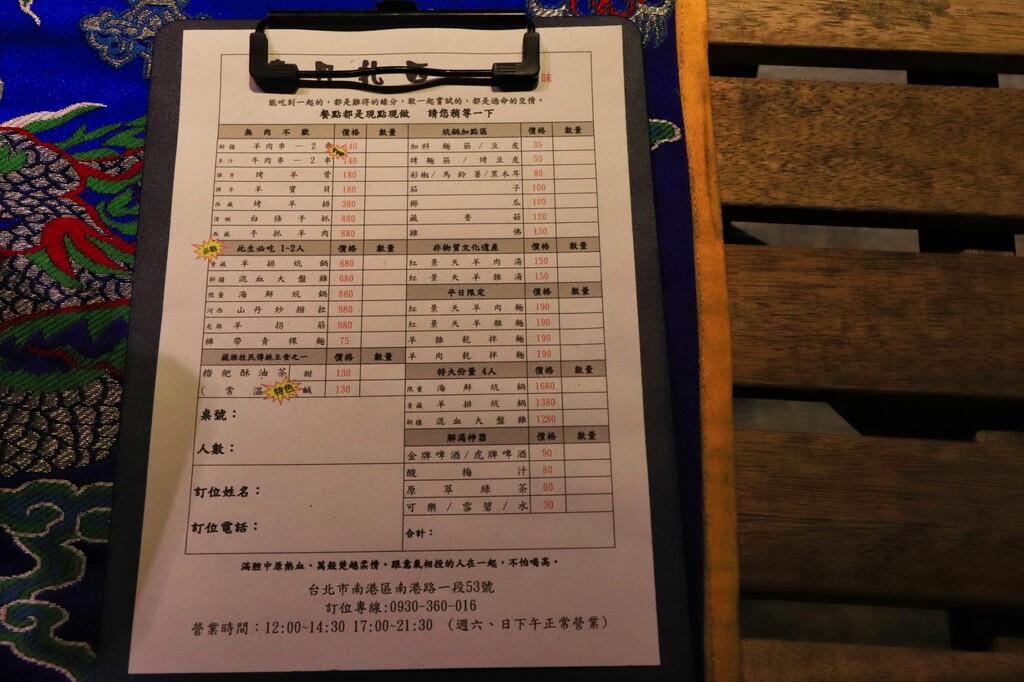 味
能吃到一起的,都是難得的緣分,敢一起嘗試的,都是過命的交情。
餐點都是現點現做 請您稍等一下
無肉不歡 價格 數量
新疆 羊肉串一2串 140
多汁 牛肉串一2串 140
烤羊 180
羊寶貝 180
西藏 烤羊排 380
白條手抓 880
西藏 手抓羊肉 880
必點 此生必吃 1-2人 價格 數量
青藏 羊排炕鍋 680
新疆 混血大盤雞 680
限量 海鮮炕鍋 880
河西 山丹炒撥拉 980
羊拐筋 980
褲帶青稞麵 75
藏族牧民傳統主食之一 價格 數量
糌粑酥油茶 甜 130
(常溫 特色 鹹 130
桌號:
人數:
訂位姓名:
訂位電話:
炕鍋加點區 價格 數量
加料麵筋/豆皮 35
烤麵筋/烤豆皮 50
彩椒/馬鈴薯/黑木耳 80
茄子 100
櫛瓜 100
藏香菇 120
雞佛 130
非物質文化遺產 價格 數量
紅景天羊肉湯 150
紅景天羊雜湯 150
平日限定 價格 數量
紅景天羊肉麵 190
紅景天羊雜麵 190
羊雜乾拌麵 190
羊肉乾拌麵 190
特大份量 4人 價格 數量
限量 海鮮炕鍋 1680
青藏 羊排炕鍋 1380
新疆 混血大盤雞 1280
解渴神器 價格 數量
金牌啤酒/虎牌啤酒 90
酸梅汁 80
原萃綠茶 60
可樂/雪碧/水 30
合計:
滿腔中原熱血、萬般楚越柔情。跟意氣相投的人在一起,不怕喝高。
台北市南港區南港路一段53號
訂位專線:0930-360-016
營業時間:12:00~14:30 17:00~21:30 (週六、日下午正常營業)